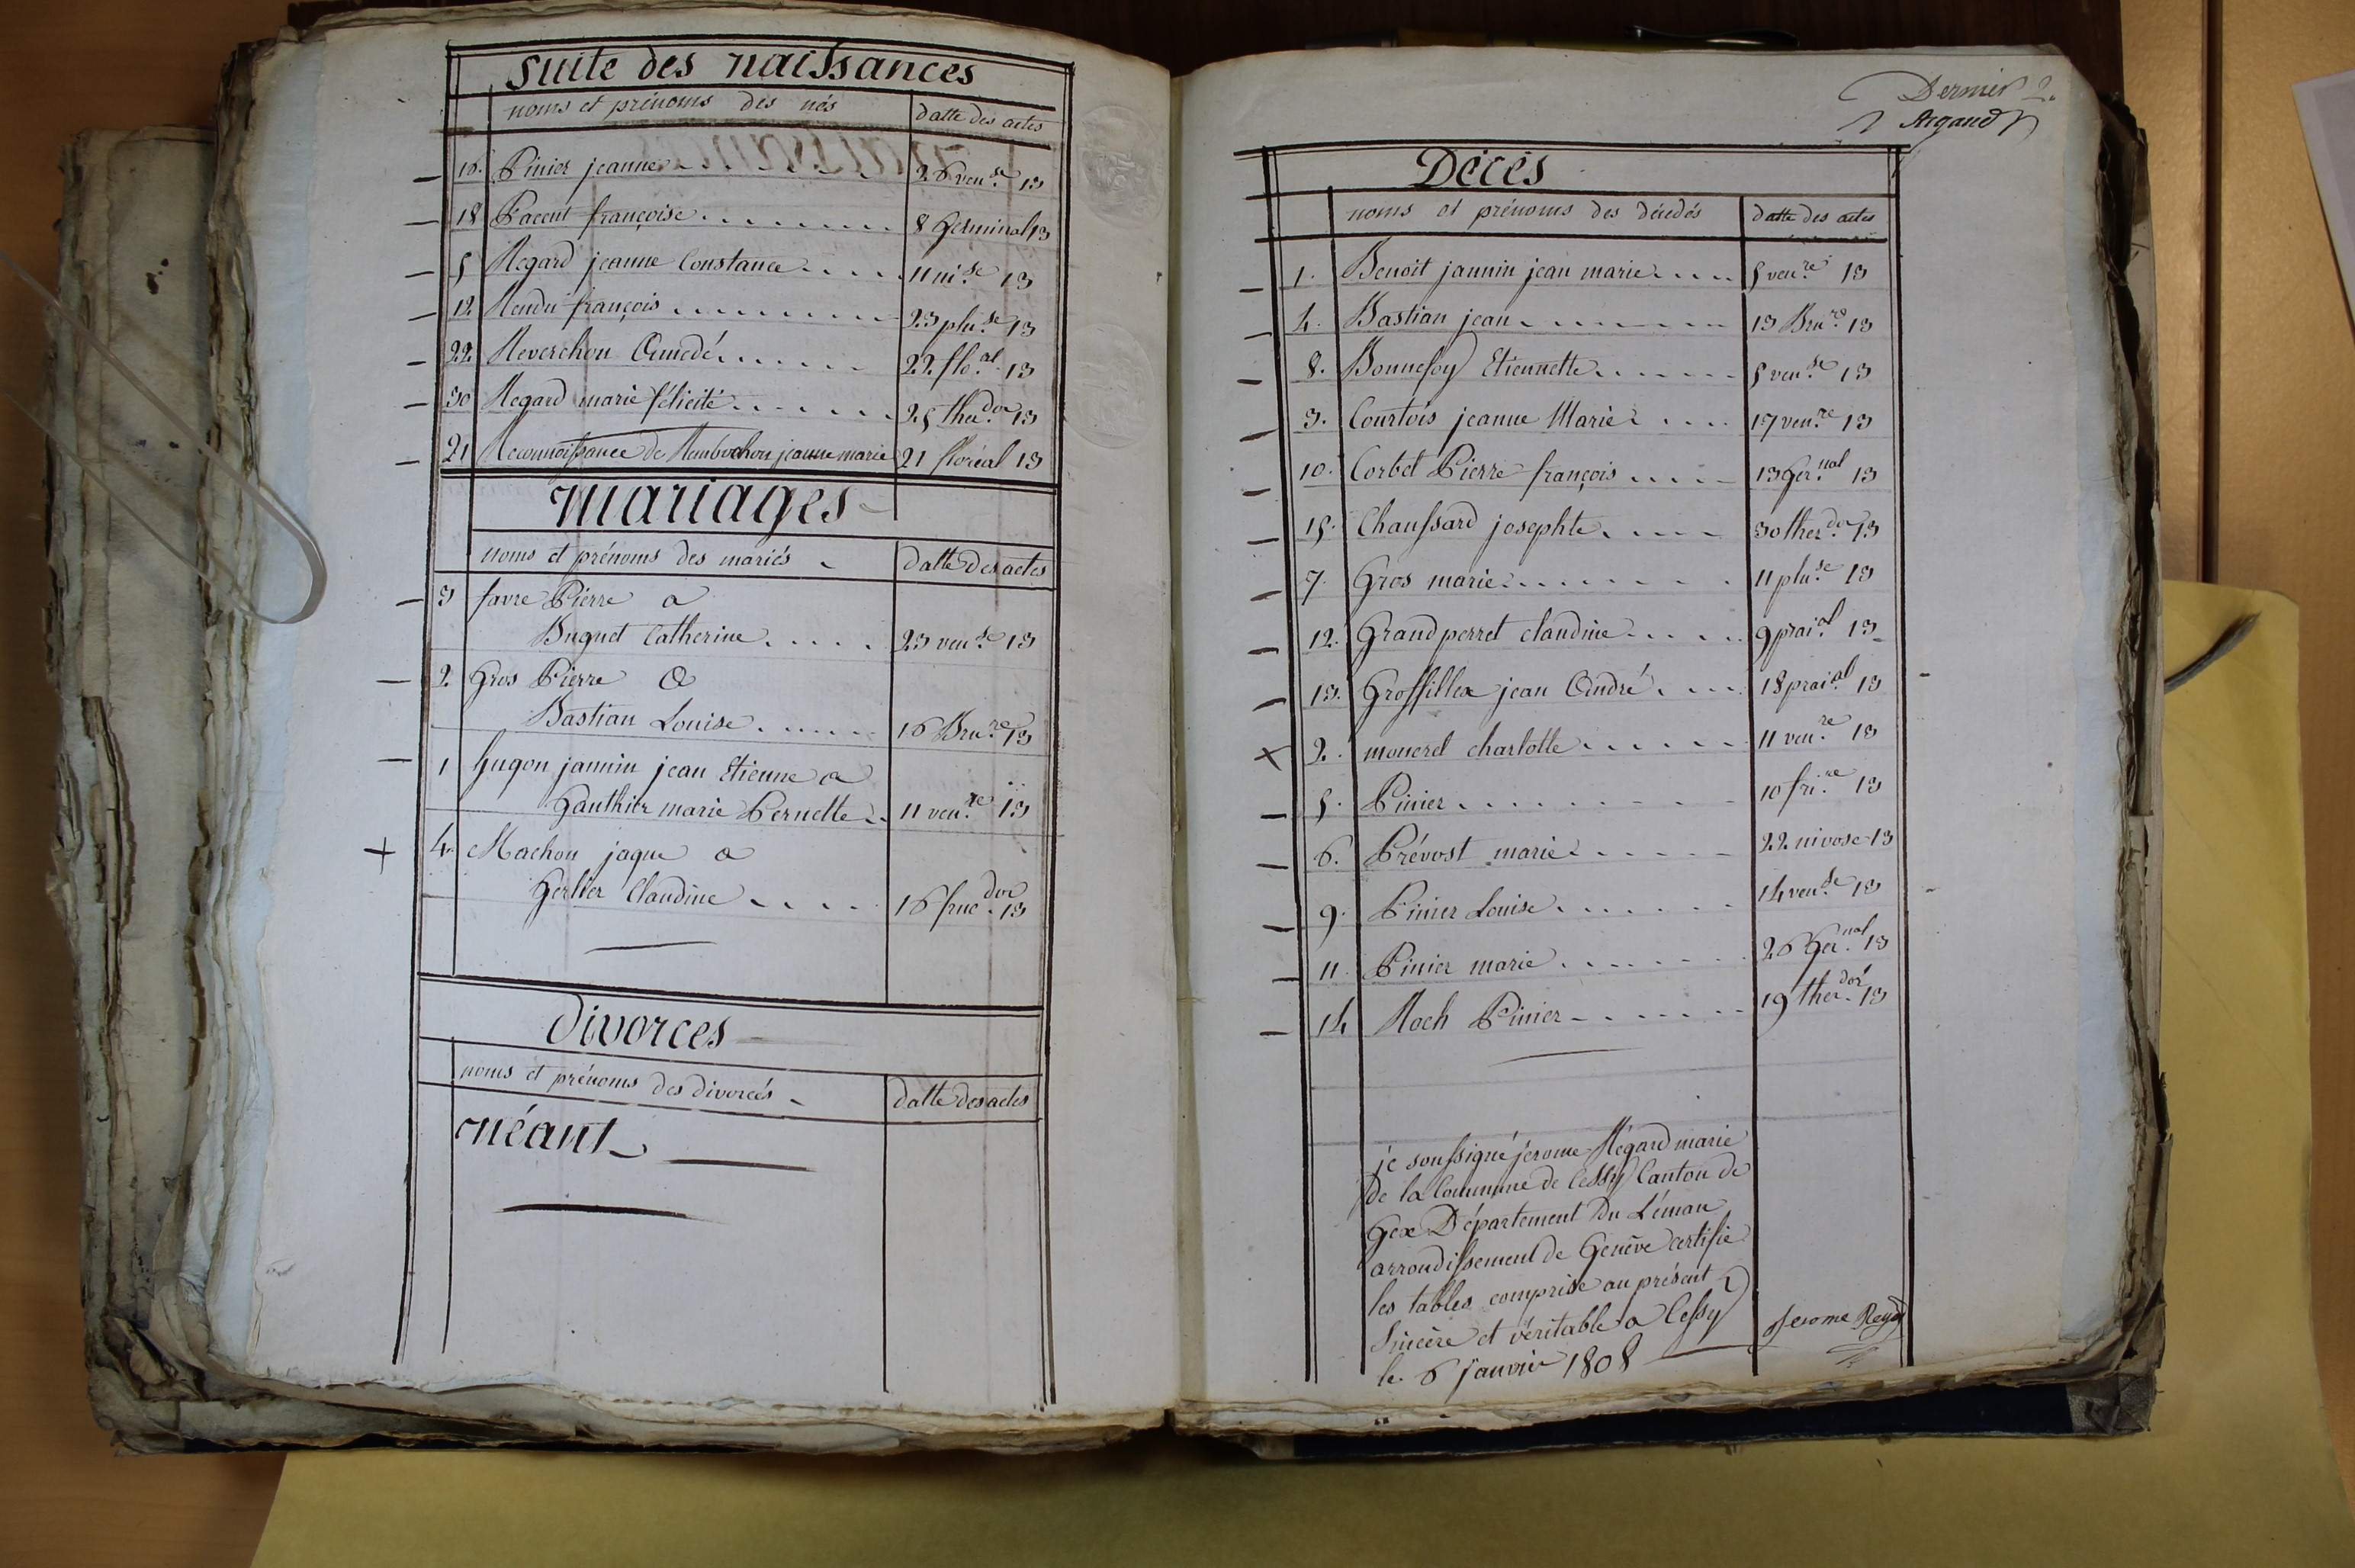 Suite des naissances
noms et prénoms des nés datte des actes
16. Pinier jeanne 26 ven.se 13
18 Pacent françoise 8 Germinal 13
5 Regard jeanne Constance 11 ni.se 13
12 Rendu françois 23 plu.se 13
22 Reverchon Amedé 22 flo.al 13
30 Regard marie félicité 25 ther.dor 13
21 Reconnoissance de Rembochon jeanne marie 21 floréal 13
mariages
noms et prénoms des mariés datte des actes
3 favre Pierre a
Buguet Catherine 23 ven.se 13
2 Gros Pierre a
Bastian Louise 16 Bru.re 13
1 Gugon jannin jean Etienne a
Gauthier marie Pernette 11 ven.re 13
4. Machon jaque a
Gerlier Claudine 16 fruc.dor 13
divorces
noms et prénoms des divorcés datte des actes
néant
Dernier 2.
Argand
Décès
noms et prénoms des décédés datte des actes
1. Benoit jannin jean marie 5 ven.re 13
4. Bastian jean 13 Bru.re 13
8. Bonnefoy Etiennette 5 ven.se 13
3. Courtois jeanne Marie 17 ven.re 13
10. Corbet Pierre françois 13 Ger.nal 13
15. Chaussard josephte 30 ther.dor 13
7. Gros marie 11 plu.se 13
12. Grandperret claudine 9 prai.al 13
13. Grossillex jean André 18 prai.al 13
2. moucrel charlotte 11 ven.re 13
5. Pinier 10 fri.re 13
6. Prévost marie 22 nivose 13
9. Pinier Louise 14 ven.se 13
11. Pinier marie 26 Ger.nal 13
14 Roch Pinier 19 ther.dor 13
je soussigné jerome Régard marie
de la Commune de Cessy Canton de
Gex Département du Léman
arrondissement de Genève certifie
les tables comprise au présent
Sincère et véritable a Cessy
le 6 janvier 1808
Jerome Regard